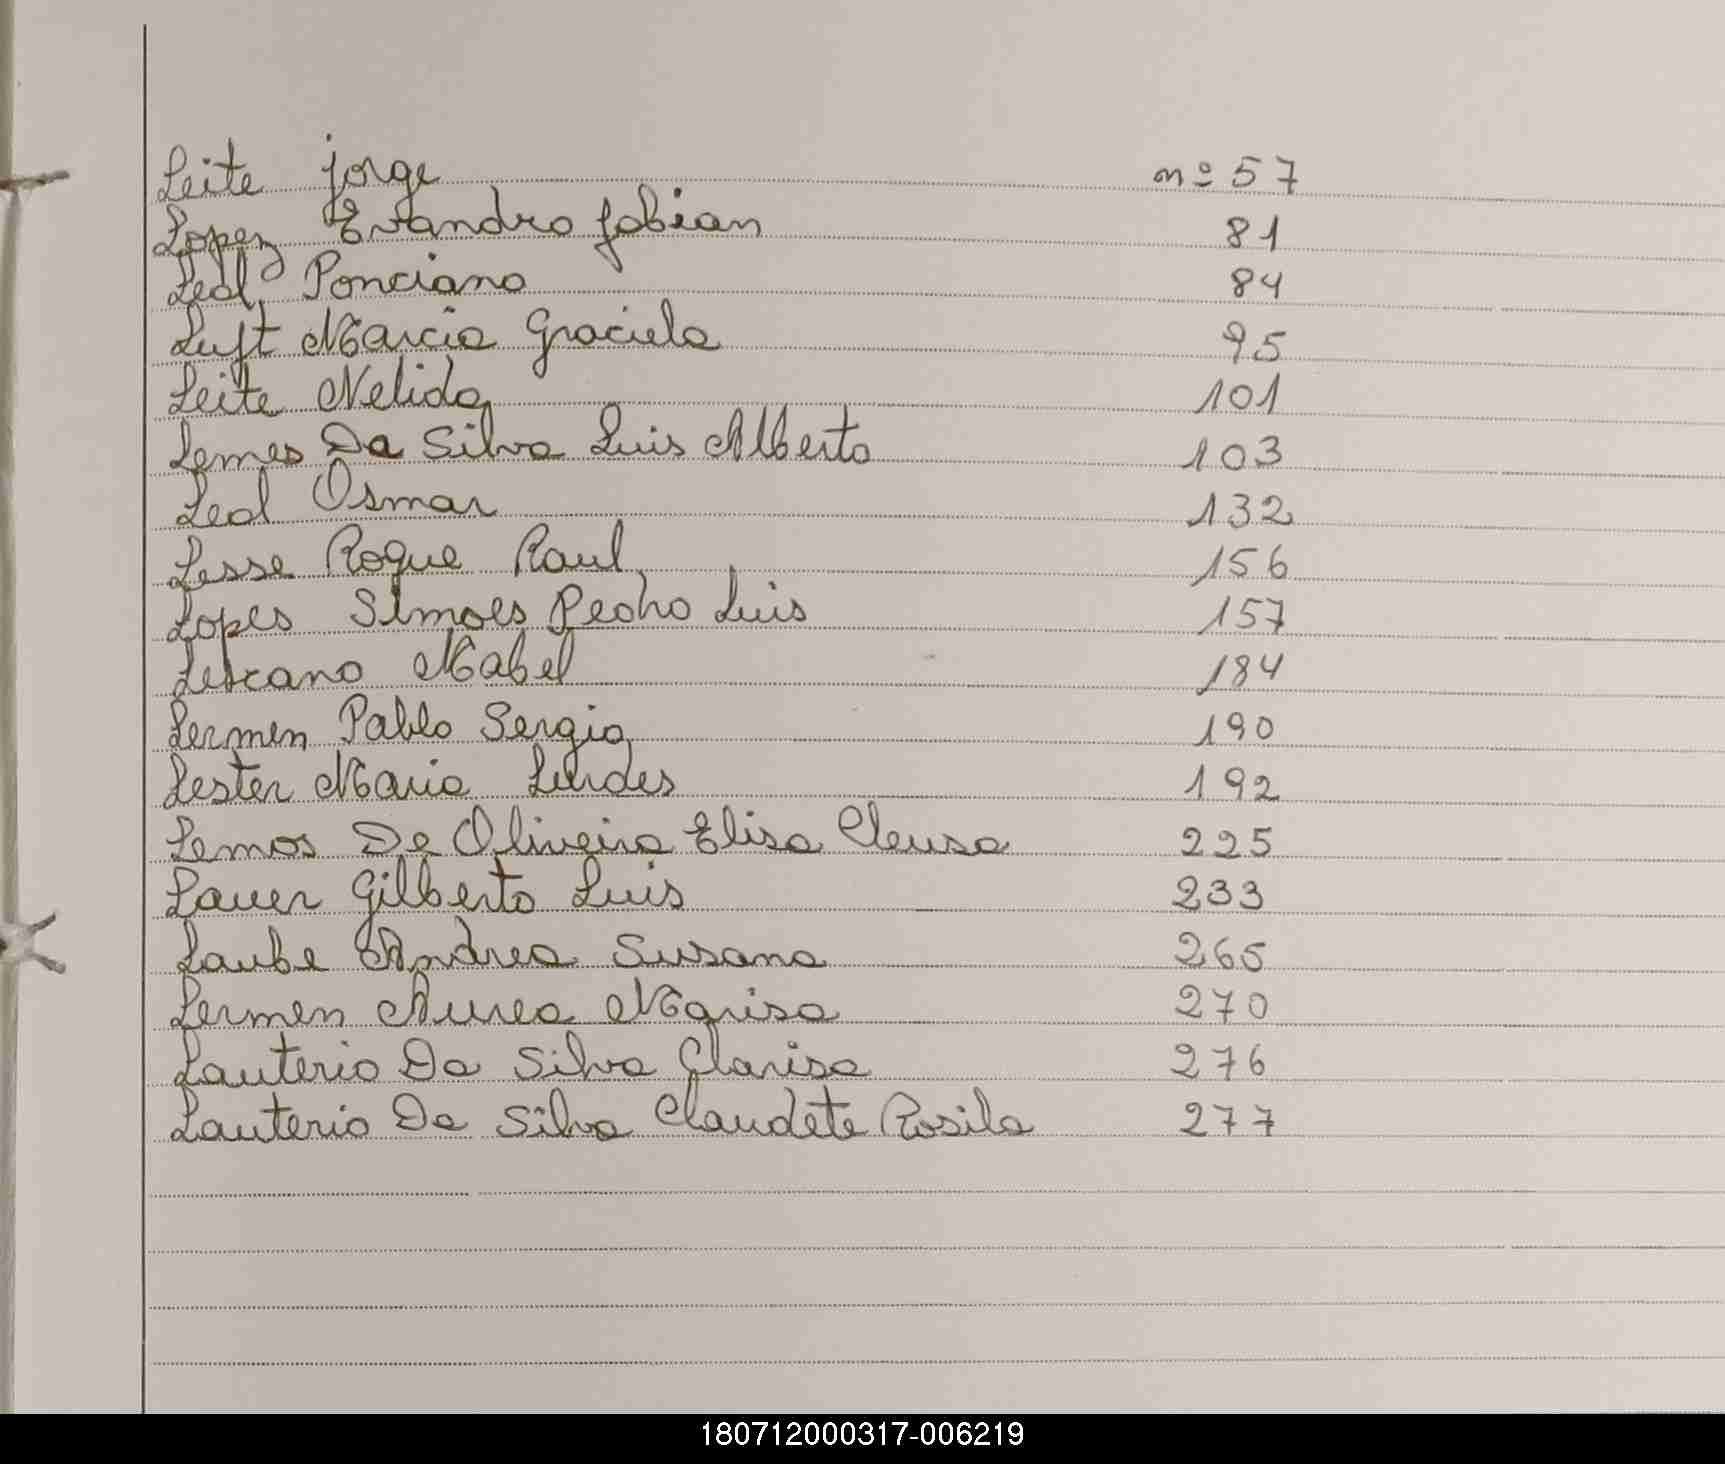 Leite Jorge nº 57
Lopez Evandro Fabian 81
Leal Ponciano 84
Luft Marcia Graciela 95
Leite Nelida 101
Lemes Da Silva Luis Alberto 103
Leal Osmar 132
Lesse Roque Raul 156
Lopes Simoes Pedro Luis 157
Lescano Mabel 184
Lermen Pablo Sergio 190
Lester Maria Lurdes 192
Lemos De Oliveira Elisa Cleusa 225
Lauer Gilberto Luis 233
Laube Andrea Susana 265
Lermen Aurea Marisa 270
Lauterio Da Silva Clarisa 276
Lauterio Da Silva Claudete Rosila 277
180712000317-006219